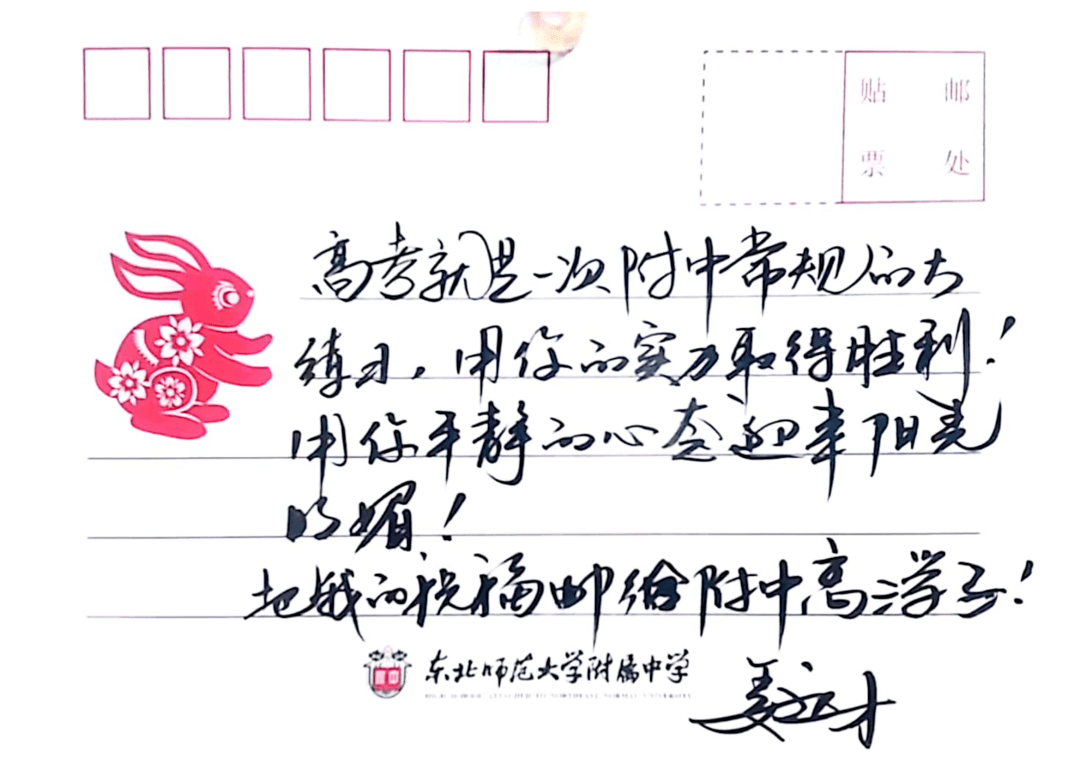 贴 邮
票 处
高考就是一次附中常规的大
练习，用你的实力取得胜利！
用你平静的心态迎来阳光
明媚！
把我的祝福邮给附中高三学子！
东北师范大学附属中学
HIGH SCHOOL ATTACHED TO NORTHEAST NORMAL UNIVERSITY
姜远才